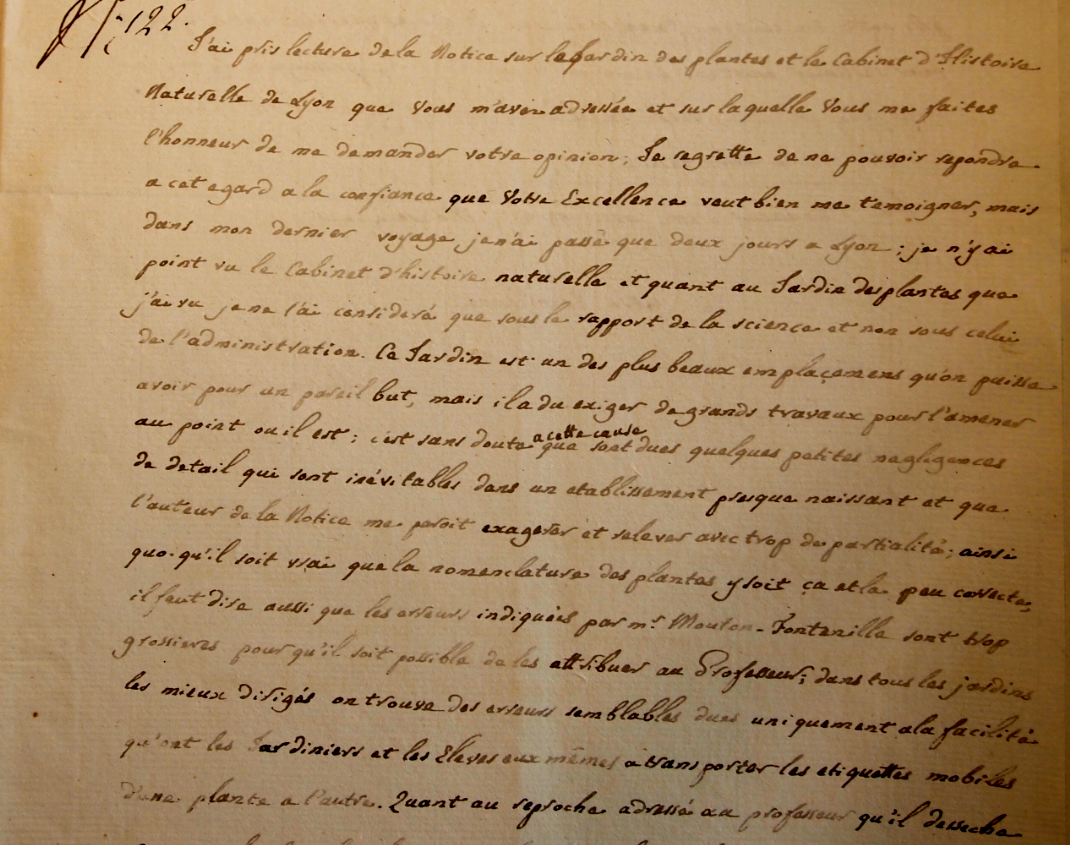 122.
J'ai pris lecture de la Notice sur le Jardin des plantes et le Cabinet d'Histoire
Naturelle de Lyon que Vous m'avez adressée et sur laquelle Vous me faites
l'honneur de me demander votre opinion; Je regrette de ne pouvoir repondre
a cet egard a la confiance que Votre Excellence veut bien me temoigner, mais
dans mon dernier voyage je n'ai passé que deux jours a Lyon : je n'y ai
point vu le Cabinet d'histoire naturelle et quant au Jardin des plantes que
j'ai vu je ne l'ai consideré que sous le rapport de la science et non sous celui
de l'administration. Ce Jardin est un des plus beaux emplaçemens qu'on puisse
avoir pour un pareil but, mais il a du exiger de grands travaux pour l'amener
au point ou il est; c'est sans doute a cette cause que sont dues quelques petites negligences
de detail qui sont inévitables dans un etablissement presque naissant et que
l'auteur de la Notice me paroit exagerer et relever avec trop de partialité; ainsi
quoiqu'il soit vrai que la nomenclature des plantes y soit ça et la peu correcte,
il faut dire aussi que les erreurs indiquées par mr. Mouton-Fontenille sont trop
grossieres pour qu'il soit possible de les attribuer au Professeur; dans tous les jardins
les mieux dirigés on trouve des erreurs semblables dues uniquement a la facilité
qu'ont les Jardiniers et les Eleves eux mêmes a transporter les etiquettes mobiles
d'une plante a l'autre. Quant au reproche adressé au professeur qu'il desseche